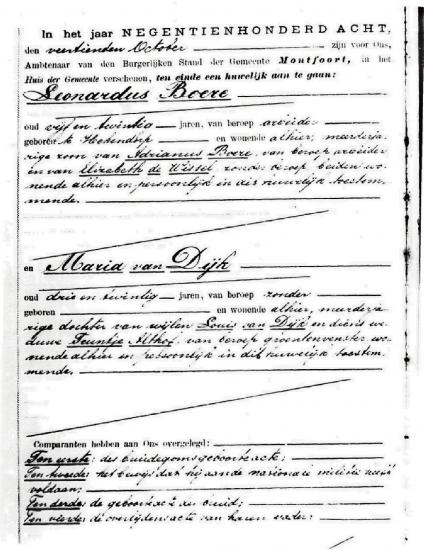 In het jaar NEGENTIENHONDERD ACHT,
den veertienden October zijn voor Ons,
Ambtenaar van den Burgerlijken Stand der Gemeente Montfoort, in het
Huis der Gemeente verschenen, ten einde een huwelijk aan te gaan:
Leonardus Boere
oud vijf en twintig jaren, van beroep arbeider
geboren te Hekendorp en wonende alhier, meerderja-
rige zoon van Adrianus Boere, van beroep arbeider
en van Elizabeth de Wissel, zonder beroep, beiden wo-
nende alhier en persoonlijk in dit huwelijk toestem-
mende.
en Maria van Dijk
oud drie en twintig jaren, van beroep zonder
geboren en wonende alhier, meerderja-
rige dochter van wijlen Louis van Dijk en diens we-
duwe Teuntje Althof, van beroep groentenventster wo-
nende alhier en persoonlijk in dit huwelijk toestem-
mende.
Comparanten hebben aan Ons overgelegd:
Ten eerste: des bruidegoms geboorteacte;
Ten tweede: het bewijs dat hij aan de nationale militie heeft
voldaan;
Ten derde: de geboorteacte der bruid;
Ten vierde: de overlijdensacte van haren vader;